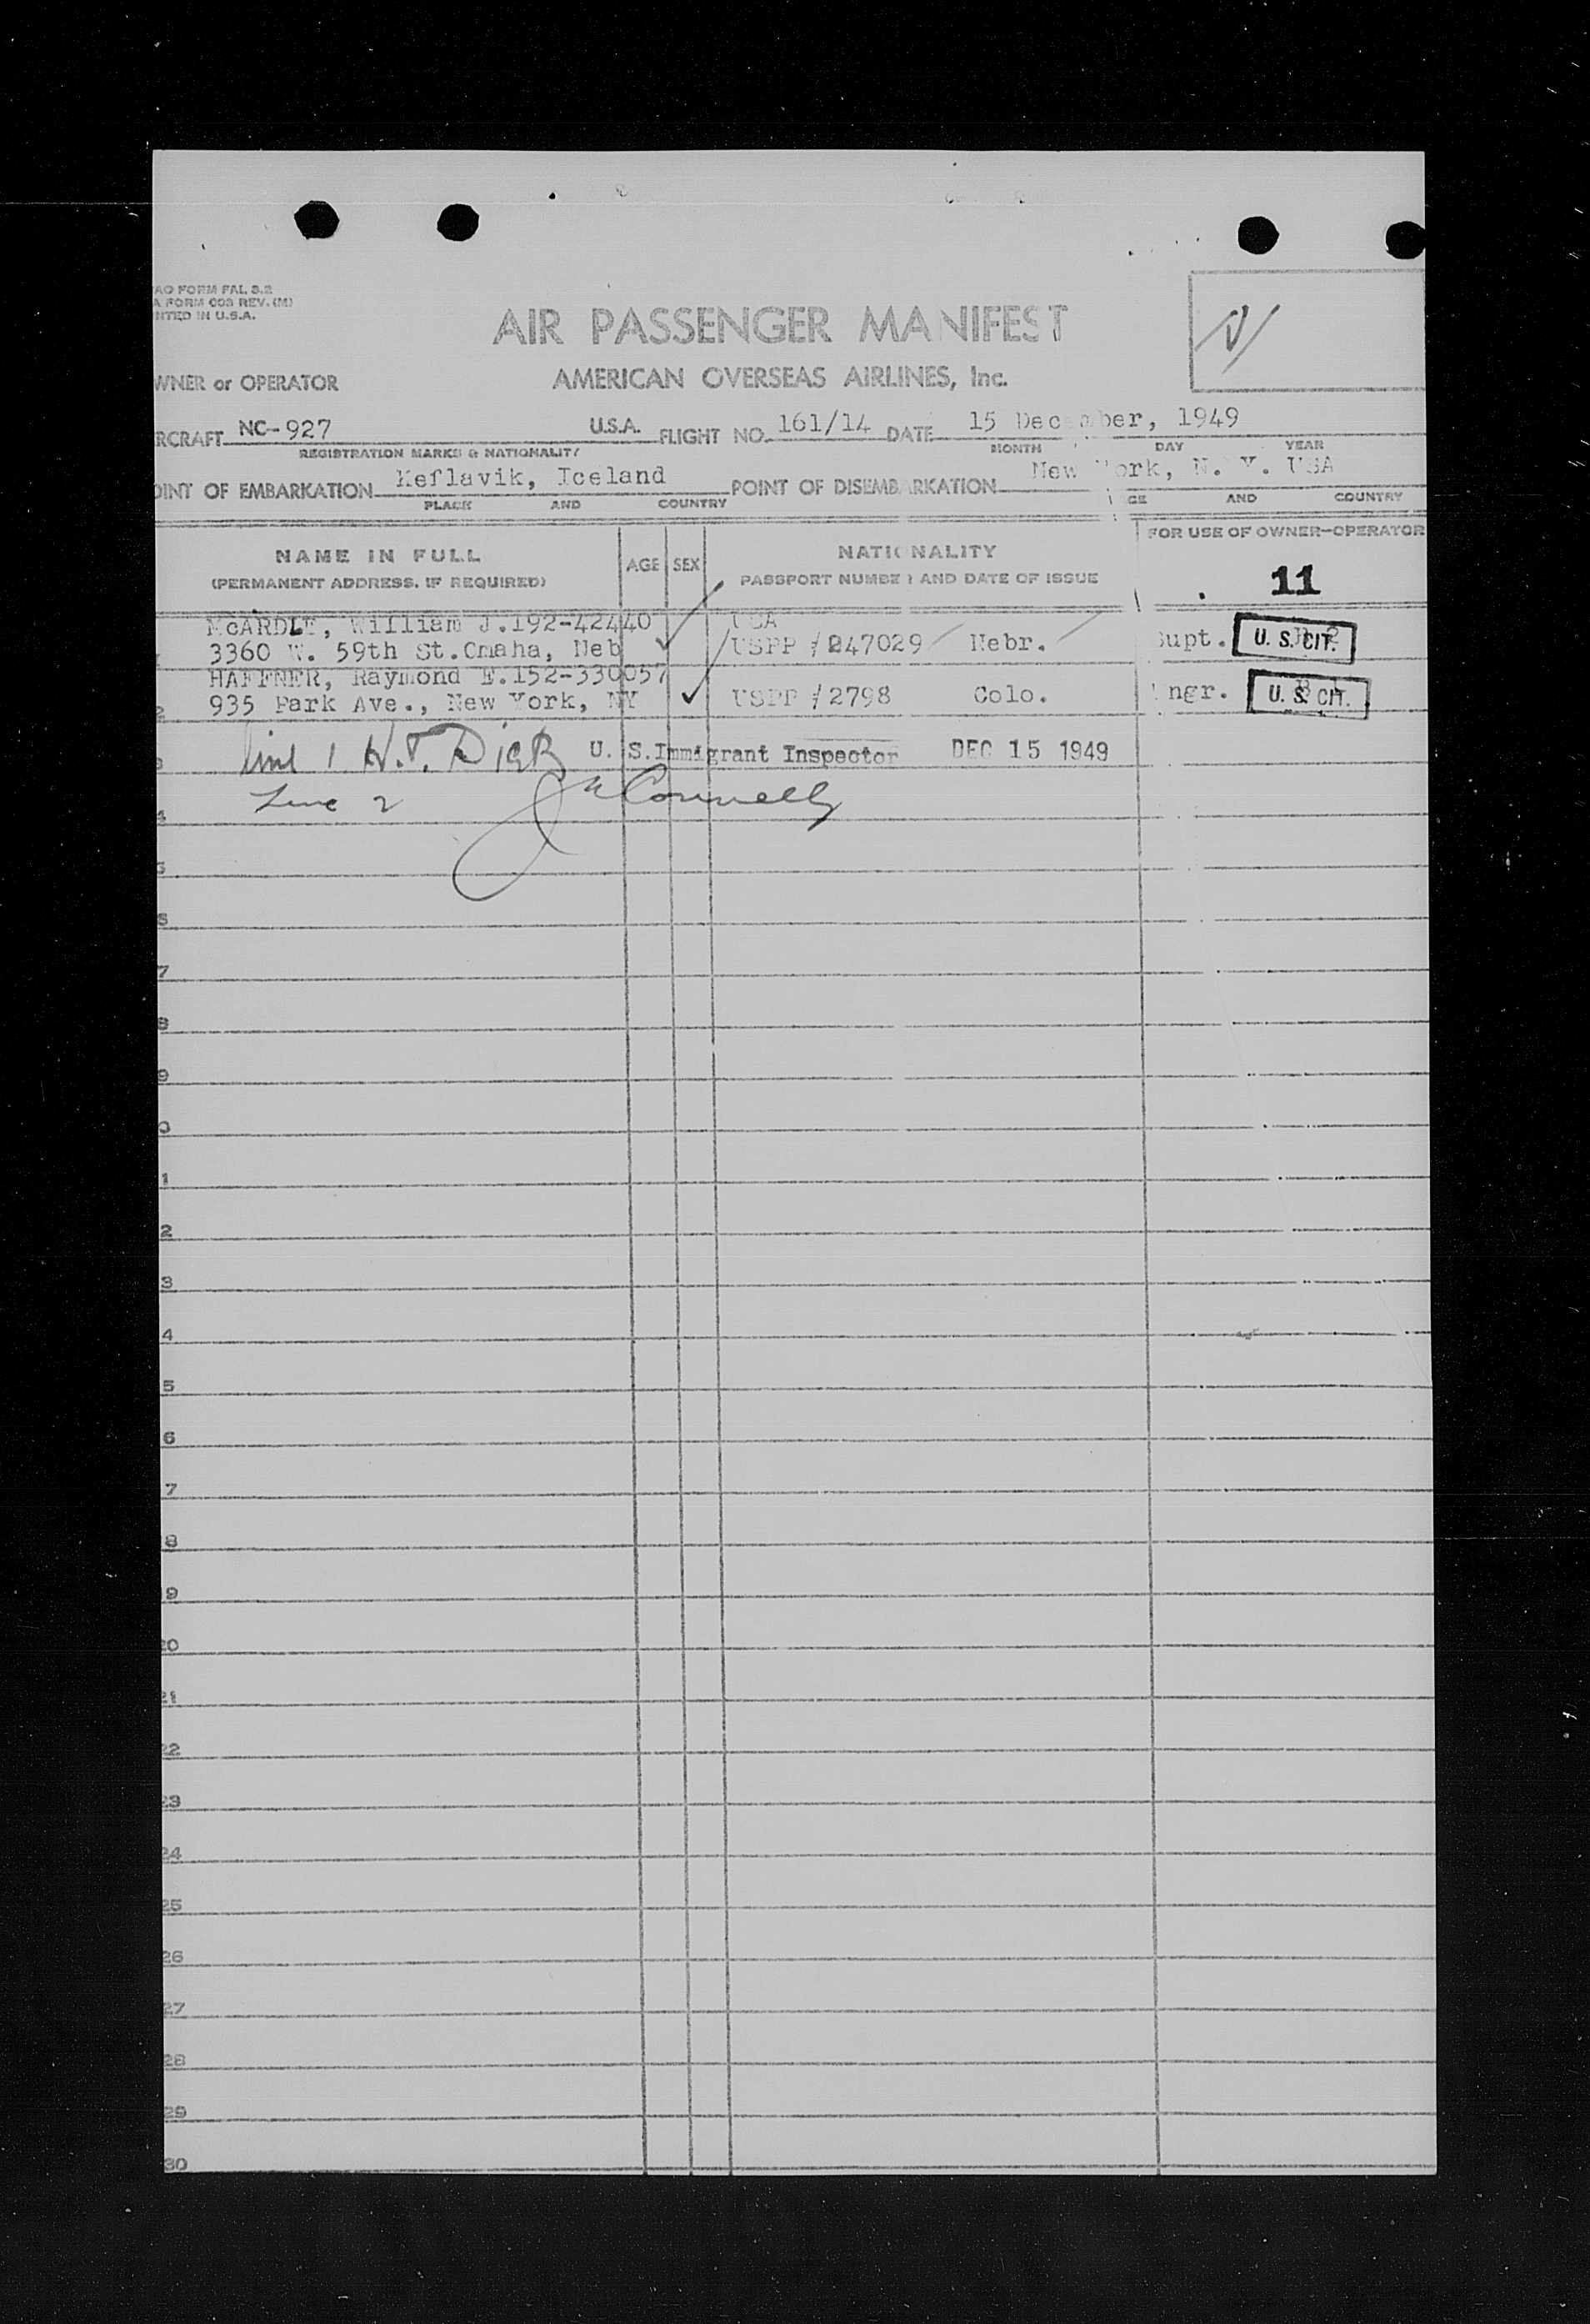 AO FORM FAL 3.2
A FORM 003 REV. (M)
NTED IN U.S.A.
AIR PASSENGER MANIFEST
WNER or OPERATOR AMERICAN OVERSEAS AIRLINES, Inc.
RCRAFT NC-927 U.S.A. FLIGHT NO. 161/14 DATE 15 Dec mber, 1949
REGISTRATION MARKS & NATIONALITY MONTH DAY YEAR
OINT OF EMBARKATION Keflavik, Iceland POINT OF DISEMBARKATION New York, N. Y. USA
PLACE AND COUNTRY CE AND COUNTRY
NAME IN FULL AGE SEX NATIONALITY FOR USE OF OWNER-OPERATOR
(PERMANENT ADDRESS, IF REQUIRED) PASSPORT NUMBER AND DATE OF ISSUE 11
McARDLE, William J.192-42440 USA
1 3360 W. 59th St.Omaha, Neb USPP #247029 Nebr. Supt. U. S. CIT.
HAFFNER, Raymond E.152-330057
2 935 Park Ave., New York, NY USPP #2798 Colo. Engr. U. S. CIT.
3 Line 1 H.T. U. S. Immigrant Inspector DEC 15 1949
Line 2 Connelly
4
5
6
7
8
9
0
1
2
3
4
5
6
7
8
9
20
21
22
23
24
25
26
27
28
29
30